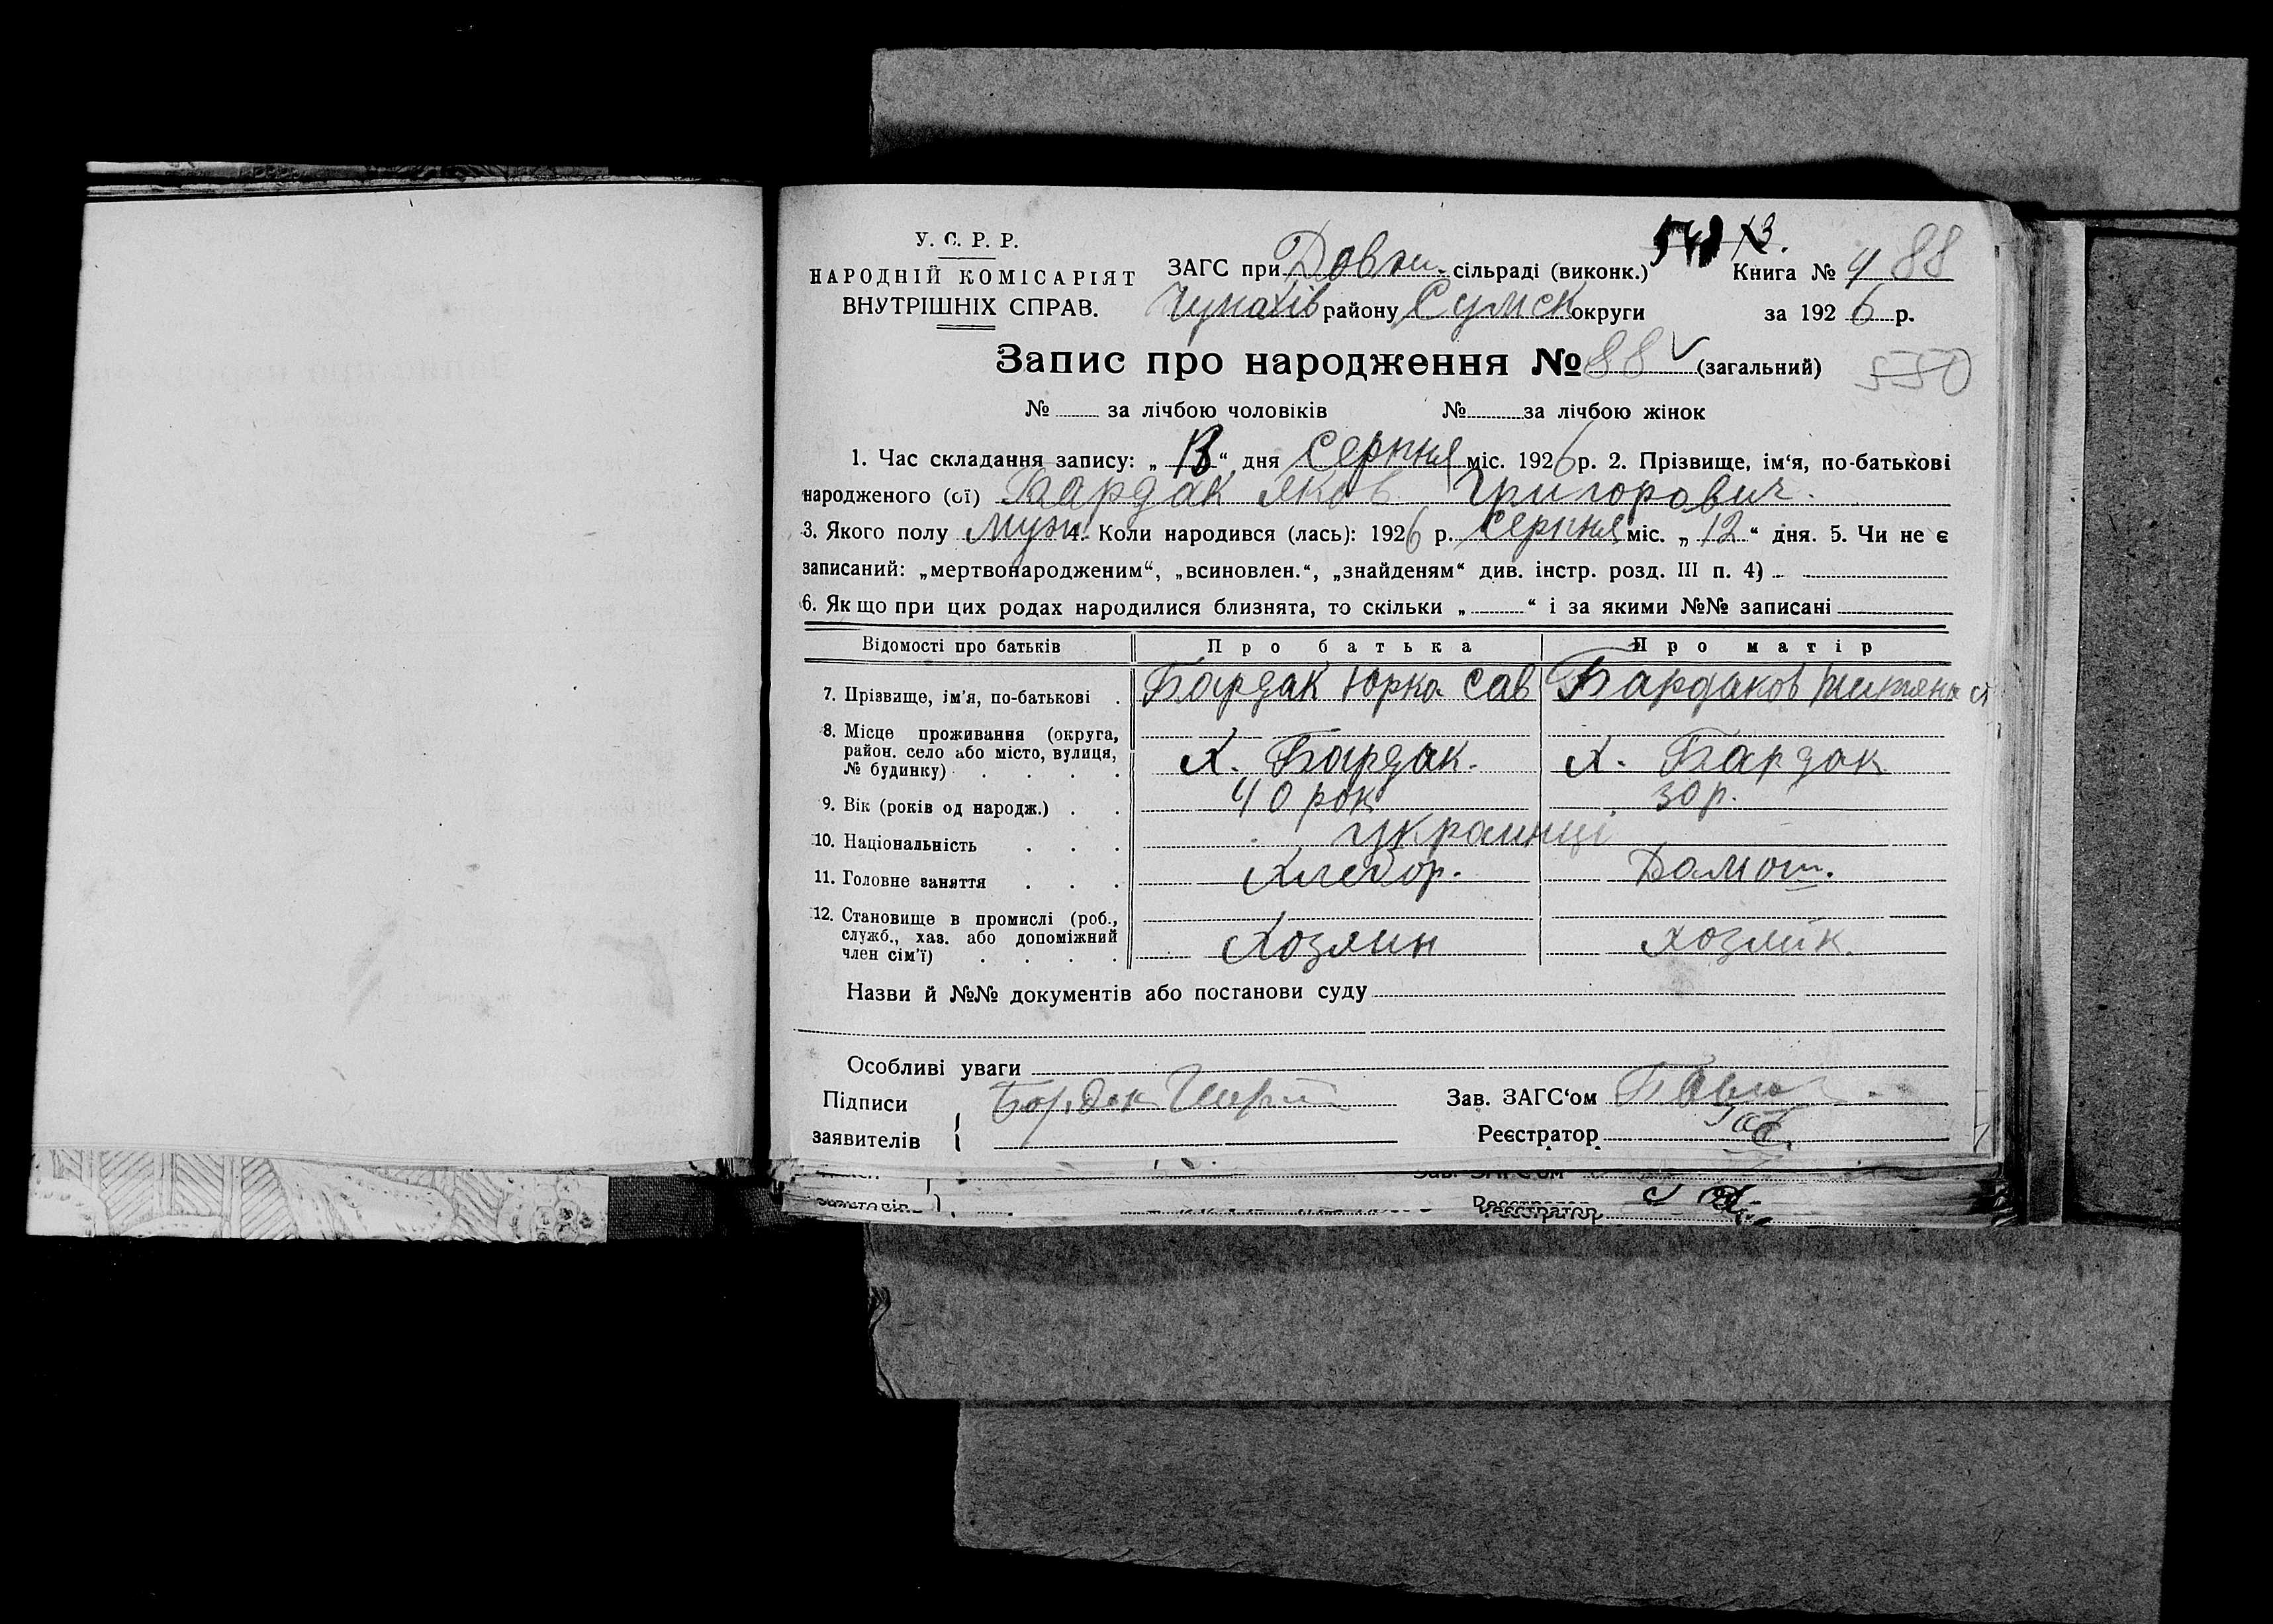 У. С. Р. Р.
НАРОДНІЙ КОМІСАРІЯТ
ВНУТРІШНІХ СПРАВ.
13.
ЗАГС при Довж. сільраді (виконк.) Книга № 4 88
Чупахів району Сумск округи за 1926 р.
Запис про народження № 88 (загальний) 550
№ за лічбою чоловіків № за лічбою жінок
1. Час складання запису: „13“ дня Серпня міс. 1926 р. 2. Прізвище, ім‘я, по-батькові
народженого (ої) Бардак Яков Григорович.
3. Якого полу Муж. 4. Коли народився (лась): 1926 р. Серпня міс. „12“ дня. 5. Чи не є
записаний: „мертвонародженим“, „всиновлен.“, „знайденям“ див. інстр. розд. III п. 4)
6. Якщо при цих родах народилися близнята, то скільки „ “ і за якими №№ записані
Відомості про батьків Про батька Про матір
7. Прізвище, ім‘я, по-батькові . Бардак Юрка Сав Бардаков
8. Місце проживання (округа,
район. село або місто, вулиця,
№ будинку) . . . . Х. Бардак. Х. Бардак
9. Вік (років од народж.) . . 40 рок 30 р.
10. Національність . . . украинці
11. Головне заняття . . . Хлебор. Домош.
12. Становище в промислі (роб.,
служб., хаз. або допоміжний
член сім‘ї) . . . . Хозяин хозяйк.
Назви й №№ документів або постанови суду
Особливі уваги
Підписи Бардак Зав. ЗАГС‘ом
заявителів { Реєстратор
Зав. ЗАГС‘ом
заявителів } Реєстратор
Реєстратор